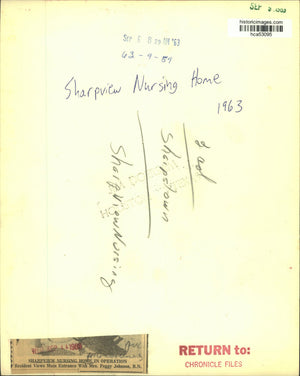 SEP
historicimages.com
nca53095
SEP 6 8 29 AM '63
63-9-89
Sharpview Nursing Home
1963
Sharpstown
SharpViewNursing
SHARPVIEW NURSING HOME IN OPERATION
Resident Views Main Entrance With Mrs. Peggy Johnson, R.N.
RETURN to:
CHRONICLE FILES